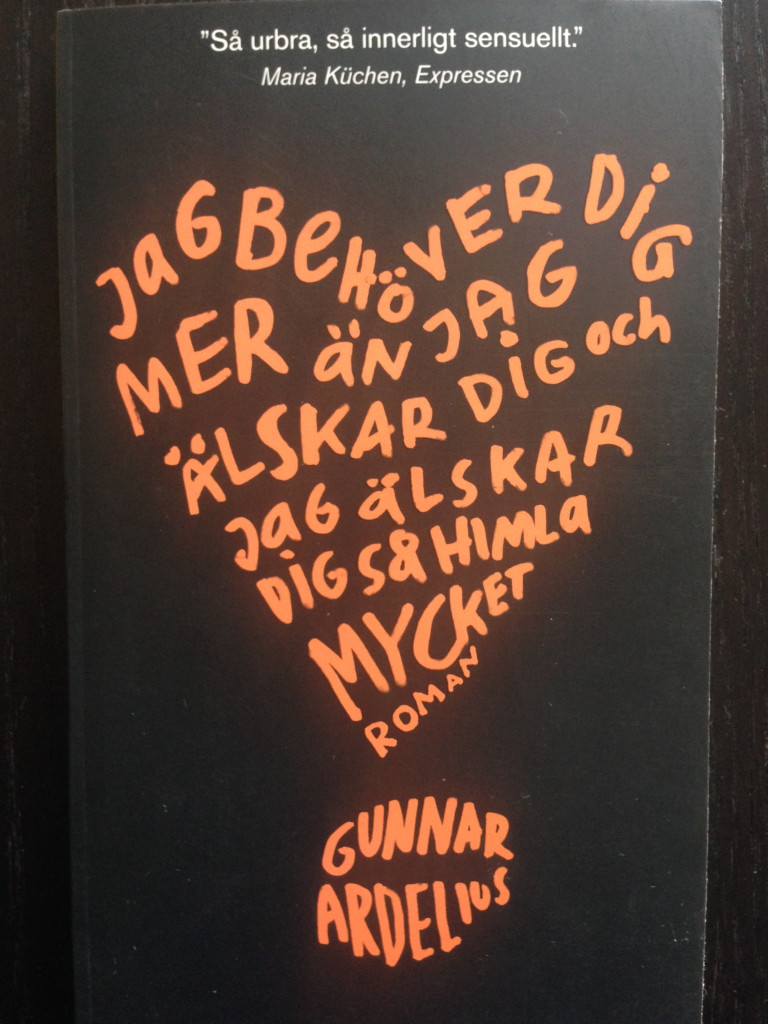 ”Så urbra, så innerligt sensuellt.”
Maria Küchen, Expressen
JaG BeHÖVER DiG
MER ÄN JAG
ÄLSKAR DiG och
JaG ÄLSKAR
DiG så HIMLa
MYCKET
ROMAN
GUNNAR
ARDELiuS